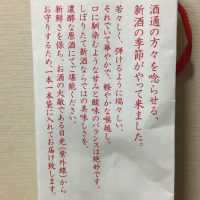 酒通の方々を唸らせる、
新酒の季節がやって来ました。
若々しく、弾けるように瑞々しい、
それでいて華やかで、軽やかな喉越し。
口に馴染むような甘みと酸味のバランスは絶妙です。
しぼりたて新酒ならではの美味しさを、
濃厚な原酒にてご堪能ください。
新鮮さを保ち、お酒の大敵である日光(紫外線)から
お守りするため、一本一本袋に入れてお届け致します。